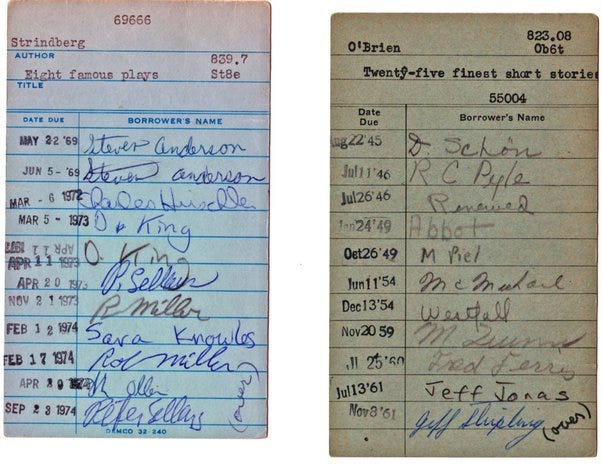 69666
Strindberg
AUTHOR
839.7
Eight famous plays St8e
TITLE
DATE DUE BORROWER'S NAME
MAY 22 '69 Steven Anderson
JUN 5 - '69 Steven Anderson
MAR - 6 1972
MAR 5 - 1973 D. King
APR 11 1973 D. King
APR 20 1973 P. Sellers
NOV 21 1973 R Miller
FEB 12 1974 Sara Knowles
FEB 17 1974 Rob Miller
APR 1974
SEP 23 1974 Peter Sellers
(over)
DEMCO 32-240
823.08
O'Brien Ob6t
Twenty-five finest short storie
55004
Date Due Borrower's Name
Aug 22 '45 D. Schön
Jul 11 '46 R C Pyle
Jul 26 '46 Renewed
Jan 24 '49 Abbot
Oct 26 '49 M Piel
Jun 11 '54 McMichael
Dec 13 '54 Westfall
Nov 20 59 M Quinn
25 '60 Fred Ferris
Jul 13 '61 Jeff Jonas
Nov 8 '61 Jeff Shipling
(over)